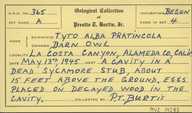 A.O.U. NO. 365 Oological Collection BEGUN
SET NO. A of EGGS IN SET 4
Pruette T. Burtis, Jr.
TYTO ALBA PRATINCOLA
BARN OWL
LA COSTA CANYON, ALAMEDA CO., CALIF.
MAY 13TH, 1945 A CAVITY IN A
DEAD SYCAMORE STUB, ABOUT
15 FEET ABOVE THE GROUND, EGGS
PLACED ON DECAYED WOOD IN THE
CAVITY. P.T. BURTIS
MVZ